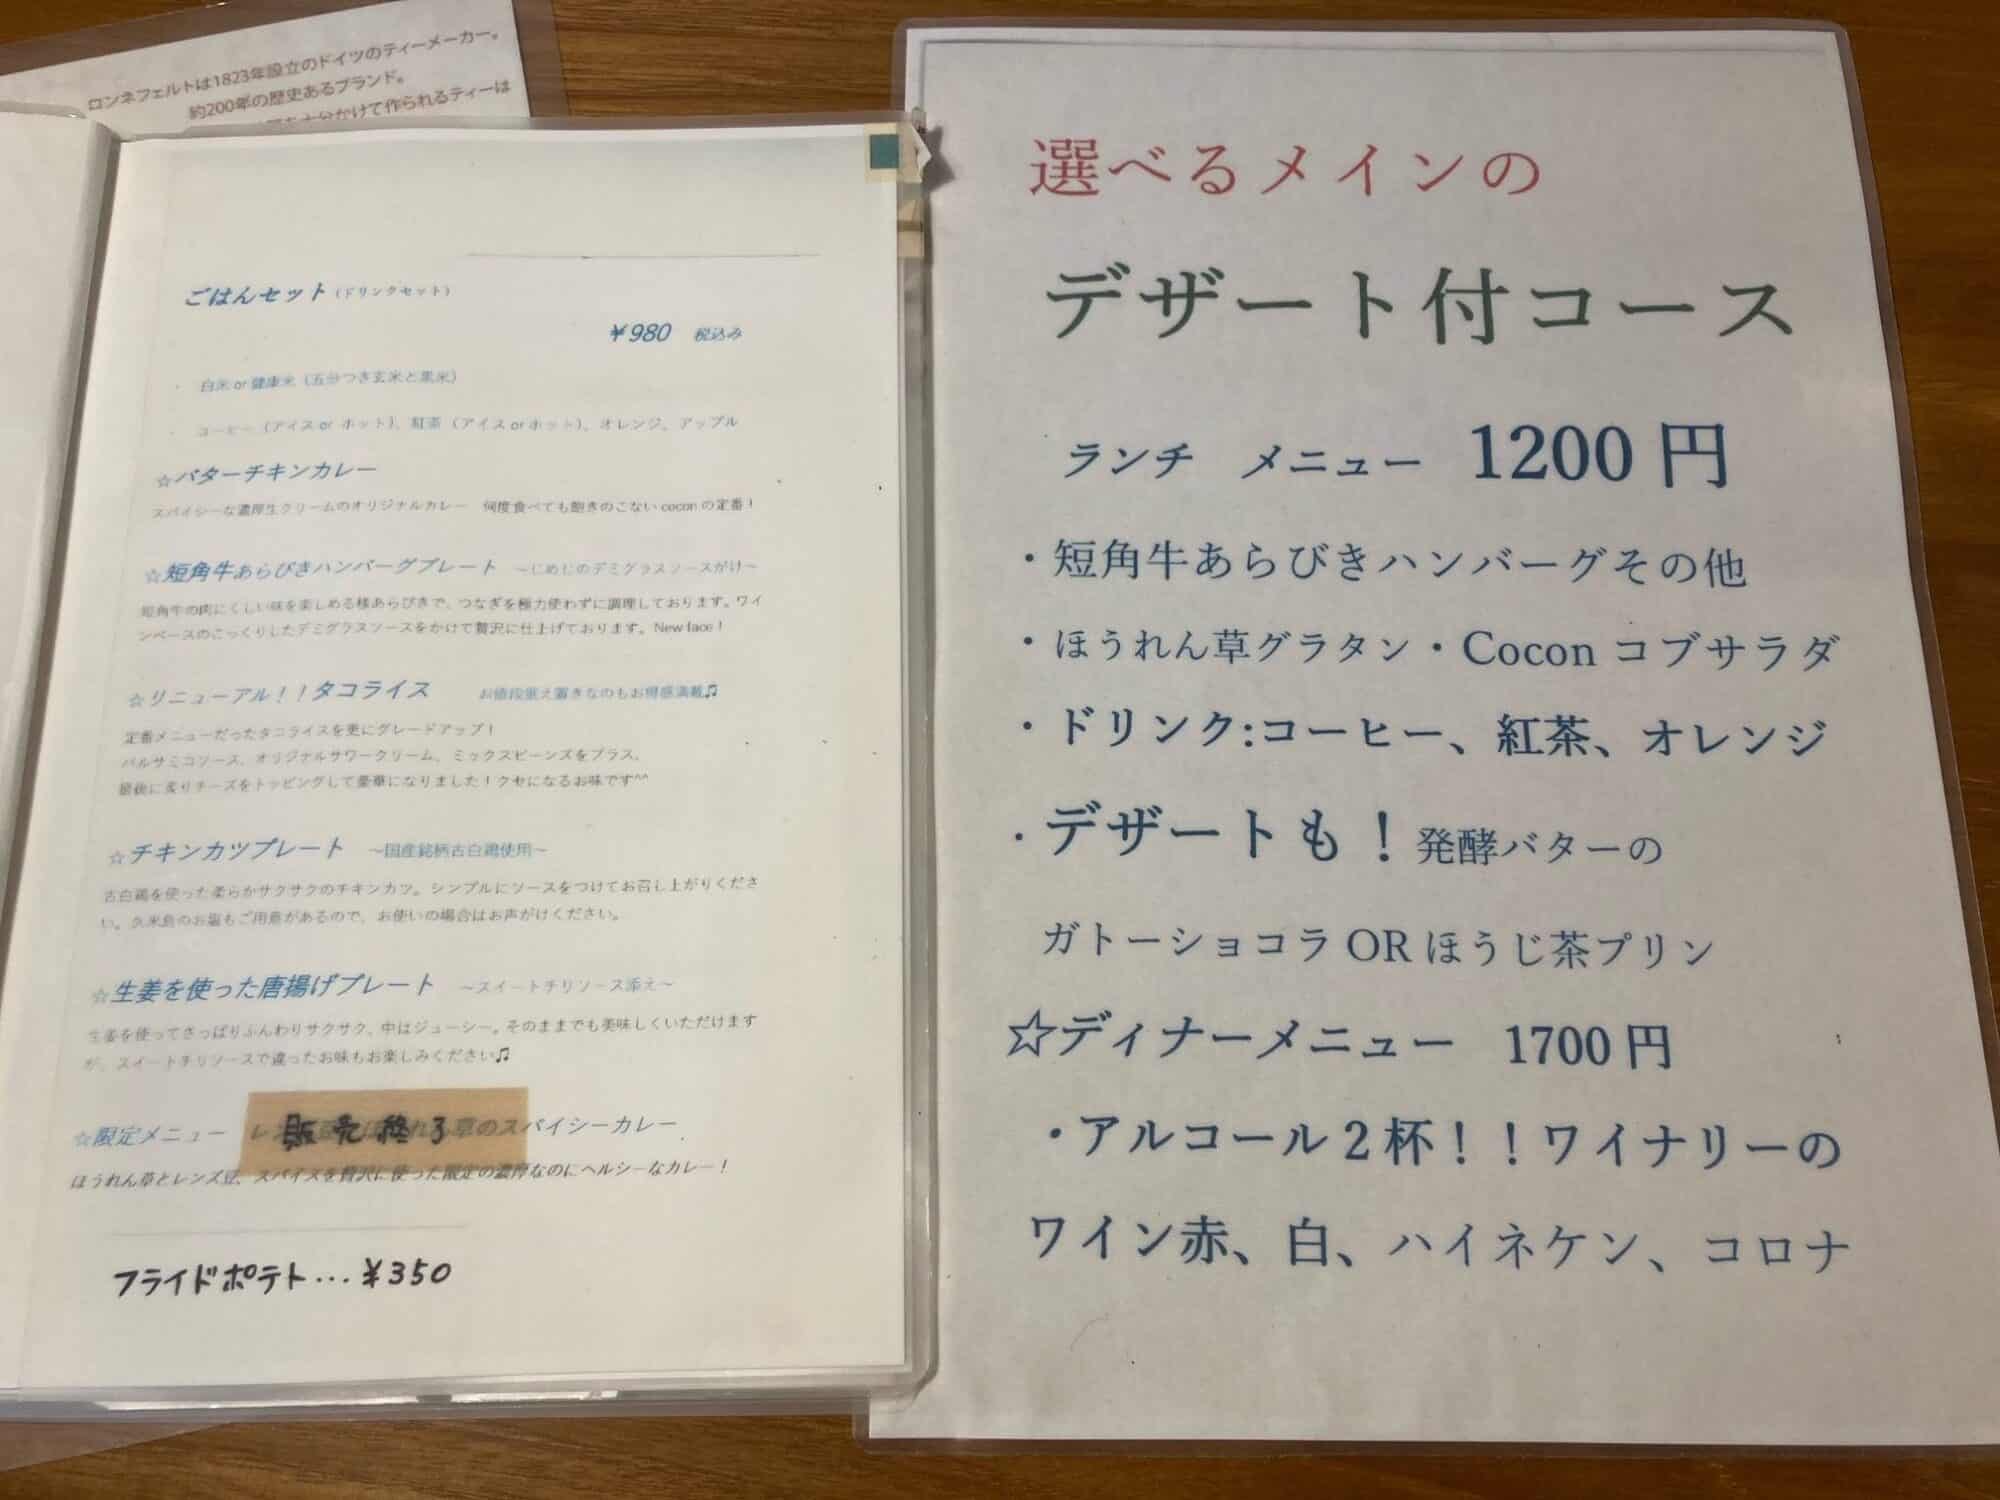 ロンネフェルトは1823年設立のドイツのティーメーカー。
約200年の歴史あるブランド。
十分かけて作られるティーは
ごはんセット(ドリンクセット)
￥980 税込み
・ 白米 or 健康米（五分つき玄米と黒米）
・ コーヒー（アイス or ホット）、紅茶（アイス or ホット）、オレンジ、アップル
☆バターチキンカレー
スパイシーな濃厚生クリームのオリジナルカレー 何度食べても飽きのこない cocon の定番！
☆短角牛あらびきハンバーグプレート ～じめじのデミグラスソースがけ～
短角牛の肉にくしい味を楽しめる様あらびきで、つなぎを極力使わずに調理しております。ワイ
ンベースのこっくりしたデミグラスソースをかけて贅沢に仕上げております。New face！
☆リニューアル！！タコライス お値段据え置きなのもお得感満載♫
定番メニューだったタコライスを更にグレードアップ！
バルサミコソース、オリジナルサワークリーム、ミックスビーンズをプラス、
最後に炙りチーズをトッピングして豪華になりました！クセになるお味です^^
☆チキンカツプレート ～国産銘柄古白鶏使用～
古白鶏を使った柔らかサクサクのチキンカツ。シンプルにソースをつけてお召し上がりくださ
い。久米島のお塩もご用意があるので、お使いの場合はお声がけください。
☆生姜を使った唐揚げプレート ～スイートチリソース添え～
生姜を使ってさっぱりふんわりサクサク、中はジューシー。そのままでも美味しくいただけます
が、スイートチリソースで違ったお味もお楽しみください♫
☆限定メニュー 販売終了 草のスパイシーカレー
ほうれん草とレンズ豆、スパイスを贅沢に使った限定の濃厚なのにヘルシーなカレー！
フライドポテト...￥350
選べるメインの
デザート付コース
ランチ メニュー 1200 円
・短角牛あらびきハンバーグその他
・ほうれん草グラタン・Cocon コブサラダ
・ドリンク:コーヒー、紅茶、オレンジ
・デザートも！発酵バターの
ガトーショコラ OR ほうじ茶プリン
☆ディナーメニュー 1700 円
・アルコール 2 杯！！ワイナリーの
ワイン赤、白、ハイネケン、コロナ